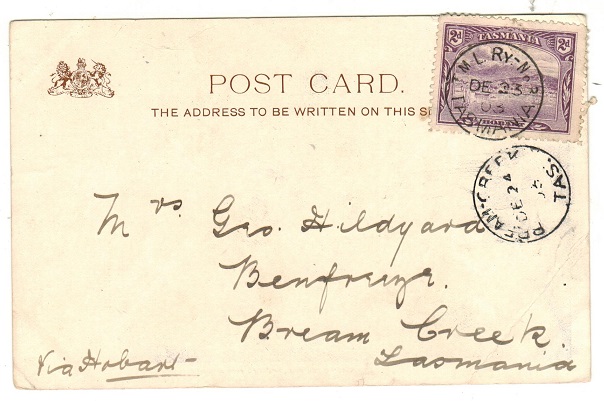 TASMANIA
2d 2d
T.M.L. RY-N
DE 23
03
TASMANIA
POST CARD.
THE ADDRESS TO BE WRITTEN ON THIS
BREAM-CREEK TAS.
DE 24
03
Mrs Geo. Hildyard
Bream Creek.
Via Hobart Tasmania